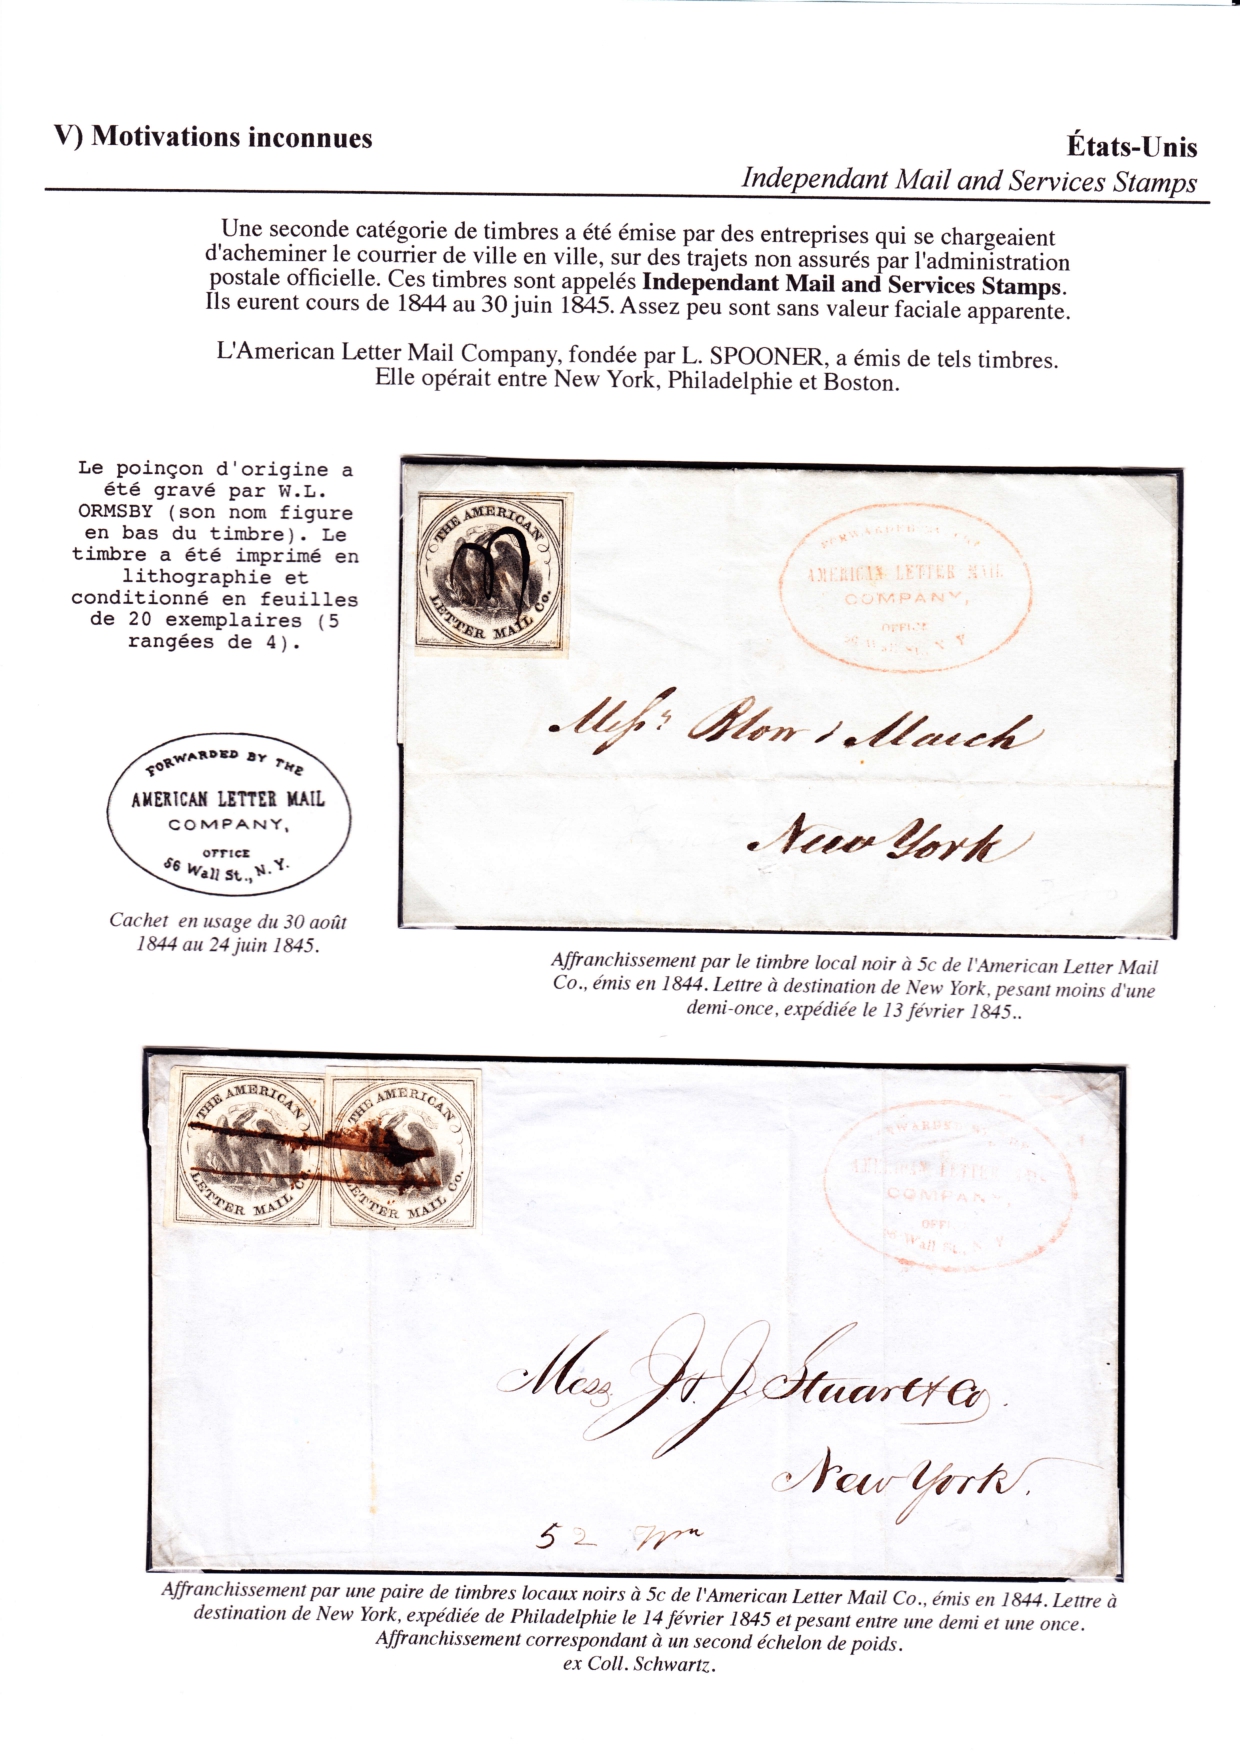 V) Motivations inconnues
États-Unis
Independant Mail and Services Stamps
Une seconde catégorie de timbres a été émise par des entreprises qui se chargeaient
d'acheminer le courrier de ville en ville, sur des trajets non assurés par l'administration
postale officielle. Ces timbres sont appelés Independant Mail and Services Stamps.
Ils eurent cours de 1844 au 30 juin 1845. Assez peu sont sans valeur faciale apparente.
L'American Letter Mail Company, fondée par L. SPOONER, a émis de tels timbres.
Elle opérait entre New York, Philadelphie et Boston.
Le poinçon d'origine a
été gravé par W.L.
ORMSBY (son nom figure
en bas du timbre). Le
timbre a été imprimé en
lithographie et
conditionné en feuilles
de 20 exemplaires (5
rangées de 4).
THE AMERICAN
LETTER MAIL Co.
FORWARDED BY THE
AMERICAN LETTER MAIL
COMPANY,
OFFICE
56 Wall St., N.Y.
Mess.rs Blow & March
New York
FORWARDED BY THE
AMERICAN LETTER MAIL
COMPANY,
OFFICE
56 Wall St., N.Y.
Cachet en usage du 30 août
1844 au 24 juin 1845.
Affranchissement par le timbre local noir à 5c de l'American Letter Mail
Co., émis en 1844. Lettre à destination de New York, pesant moins d'une
demi-once, expédiée le 13 février 1845..
THE AMERICAN
LETTER MAIL Co.
THE AMERICAN
LETTER MAIL Co.
AMERICAN LETTER
COMPANY,
Wall St., N Y
Mess J. & J. Stuart & Co.
New York.
52
Affranchissement par une paire de timbres locaux noirs à 5c de l'American Letter Mail Co., émis en 1844. Lettre à
destination de New York, expédiée de Philadelphie le 14 février 1845 et pesant entre une demi et une once.
Affranchissement correspondant à un second échelon de poids.
ex Coll. Schwartz.